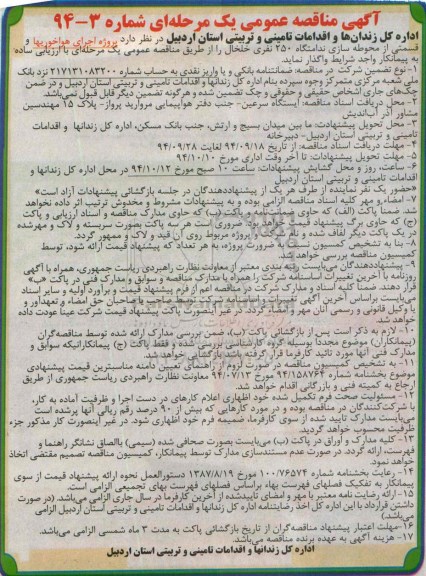 آگهی مناقصه عمومی یک مرحله‌ای شماره ۳-۹۴
اداره کل زندان‌ها و اقدامات تامینی و تربیتی استان اردبیل در نظر دارد پروژه اجرای هواخوریها و
قسمتی از محوطه سازی ندامتگاه ۲۵۰ نفری خلخال را از طریق مناقصه عمومی یک مرحله‌ای با ارزیابی ساده
به پیمانکار واجد شرایط واگذار نماید.
۱- نوع تضمین شرکت در مناقصه: ضمانتنامه بانکی و یا واریز نقدی به حساب شماره ۲۱۷۱۳۱۰۸۳۲۰۰ نزد بانک
ملی شعبه مرکزی متمرکز وجوه سپرده بنام اداره کل زندانها و اقدامات تامینی و تربیتی استان اردبیل و در ضمن
چک‌های جاری اشخاص حقیقی و حقوقی و چک تضمین شده و هرگونه تضمین دیگر قابل قبول نمی‌باشد.
۲- محل دریافت اسناد مناقصه: ایستگاه سرعین- جنب دفتر هواپیمایی مروارید پرواز- پلاک ۱۵ مهندسین
مشاور آذر آب‌اندیش
۳- محل تحویل پیشنهادت: ما بین میدان بسیج و ارتش، جنب بانک مسکن، اداره کل زندانها و اقدامات
تامینی و تربیتی استان اردبیل- دبیرخانه
۴- مهلت دریافت اسناد مناقصه: از تاریخ ۹۴/۰۹/۱۸ لغایت ۹۴/۰۹/۲۸
۵- مهلت تحویل پیشنهادات: تا آخر وقت اداری مورخ ۹۴/۱۰/۱۰
۶- ساعت، روز و محل گشایش پیشنهادات: ساعت ۱۰ صبح مورخ ۹۴/۱۰/۱۲ در محل اداره کل زندانها و
اقدامات تامینی و تربیتی استان اردبیل
«حضور یک نفر نماینده از طرف هر یک از پیشنهاددهندگان در جلسه بازگشائی پیشنهادات آزاد است»
۷- امضاء و مهر کلیه اسناد مناقصه الزامی بوده و به پیشنهادات مشروط و مخدوش ترتیب اثر داده نخواهد
شد. ضمناً پاکت (الف) که حاوی ضمانتنامه و پاکت (ب) که حاوی مدارک مناقصه و اسناد ارزیابی و پاکت
(ج) که حاوی برگ پیشنهاد قیمت خواهد بود. ضروری است هر سه پاکت بصورت سربسته و لاک و مهرشده
در یک پاکت دیگر لفاف شده و نام شرکت و پروژه مربوط روی آن قید و لاک و ممهور گردد.
۸- بنا به تشخیص کمیسیون نسبت به ضرورت پروژه، به هر تعداد که پیشنهاد قیمت ارائه شود، توسط
کمیسیون مناقصه بررسی خواهد شد.
۹- پیشنهاددهندگان می‌بایست رتبه بندی معتبر از معاونت نظارت راهبردی ریاست جمهوری، همراه با آگهی
روزنامه با آخرین تغییرات اساسنامه شرکت را همراه با مدارک مناقصه و سوابق و مدارک فنی در پاکت «ب»
قرار دهند. ضمناً کلیه اسناد و مدارک شرکت در مناقصه اعم از فرم پیشنهاد قیمت و برآورد اولیه و سایر اسناد
می‌بایست براساس آخرین آگهی تغییرات و اساسنامه شرکت توسط صاحب یا صاحبان حق امضاء و تعهدآور و
یا وکیل قانونی و رسمی آنان مهر و امضاء گردد. در غیر اینصورت پاکت پیشنهاد قیمت شرکت عینا عودت داده
خواهد شد.
۱۰- لازم به ذکر است پس از بازگشائی پاکت (ب)، ضمن بررسی مدارک ارائه شده توسط مناقصه‌گران
(پیمانکاران) موضوع مجدداً بوسیله گروه کارشناسی بررسی شده و فقط پاکت (ج) پیمانکارانیکه سوابق و
مدارک فنی آنها مورد تائید کارفرما قرار گرفته باشد بازگشایی خواهد شد.
۱۱- به تشخیص کمیسیون مناقصه در صورت لزوم از راهنمای تعیین دامنه مناسبترین قیمت پیشنهادی
موضوع بخشنامه شماره ۹۴/۱۵۸۷۶۴ مورخ ۹۴/۰۷/۱۳ معاونت نظارت راهبردی ریاست جمهوری از طریق
ارجاع به کمیته فنی و بازرگانی اقدام خواهد شد.
۱۲- مسئولیت صحت فرم تکمیل شده خود اظهاری اعلام کارهای در دست اجرا و ظرفیت آماده به کار،
با شرکت‌کنندگان در مناقصه بوده و در مورد کارهایی که بیش از ۹۰ درصد رقم ریالی آنها پرشده است
می‌بایست مدارک تایید شده از سوی کارفرما، ضمیمه فرم خود اظهاری شود. در غیر اینصورت کار مذکور جزء
ظرفیت محسوب خواهد گردید.
۱۳- کلیه مدارک و اوراق در پاکت (ب) می‌بایست بصورت صحافی شده (سیمی) باالصاق نشانگر راهنما و
فهرست، ارائه گردد. در صورت عدم مستندسازی مدارک توسط پیمانکار، کمیسیون مناقصه تصمیم مقتضی اتخاذ
خواهد نمود.
۱۴- رعایت بخشنامه شماره ۱۰۰/۷۶۵۷۴ مورخ ۱۳۸۷/۸/۱۹ دستورالعمل نحوه ارائه پیشنهاد قیمت از سوی
پیمانکار به تفکیک فصلهای فهرست بهاء براساس فصلهای فهرست بهای تجمیعی الزامی است.
۱۵- ارائه رضایت نامه معتبر با مهر و امضای تاییدشده از آخرین کارفرما در سال جاری الزامی می‌باشد. (در صورت
داشتن قرارداد با این اداره کل اخذ رضایتنامه اداره کل زندانها و اقدامات تامینی و تربیتی استان اردبیل الزامی
می‌باشد.)
۱۶- مهلت اعتبار پیشنهاد مناقصه‌گران از تاریخ بازگشائی پاکت به مدت ۳ ماه شمسی الزامی می‌باشد.
۱۷- هزینه آگهی به عهده برنده مناقصه می‌باشد.
اداره کل زندانها و اقدامات تامینی و تربیتی استان اردبیل